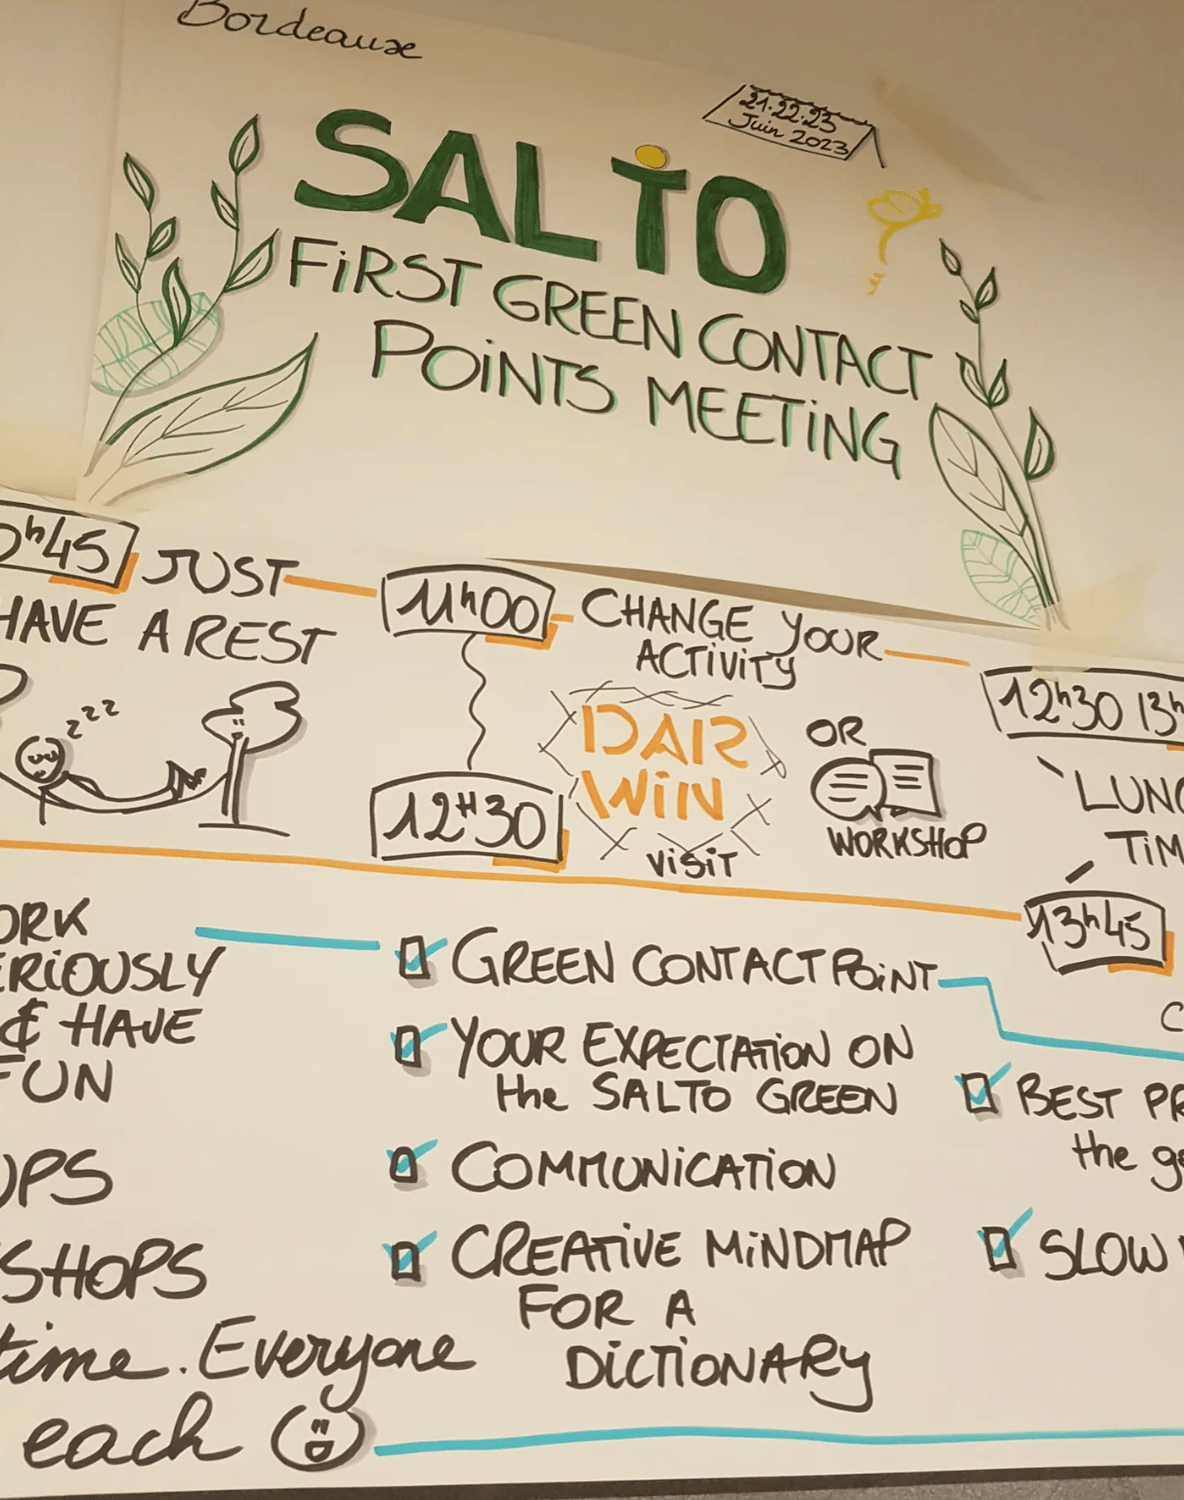 Bordeaux
21.22.23
Juin 2023
SALTO
FIRST GREEN CONTACT
POINTS MEETING
h45
JUST
HAVE A REST
zzz
11h00
12H30
CHANGE YOUR
ACTIVITY
DARWIN
VISIT
OR
WORKSHOP
12h30 13h
LUNC
TIM
13h45
ORK
ERIOUSLY
& HAVE
FUN
UPS
SHOPS
time. Everyone
each
GREEN CONTACT POINT
YOUR EXPECTATION ON
the SALTO GREEN
COMMUNICATION
CREATIVE MINDMAP
FOR A
DICTIONARY
C
BEST PR
the g
SLOW